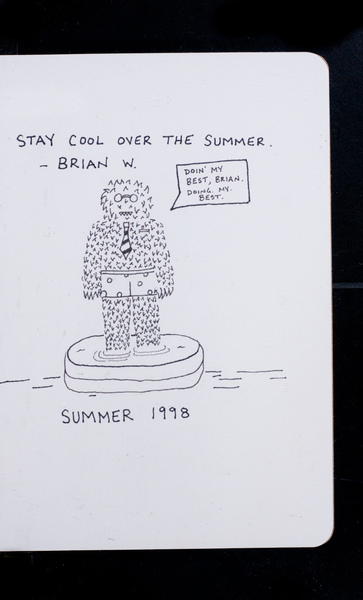 STAY COOL OVER THE SUMMER.
- BRIAN W.
DOIN' MY
BEST, BRIAN.
DOING. MY.
BEST.
SUMMER 1998